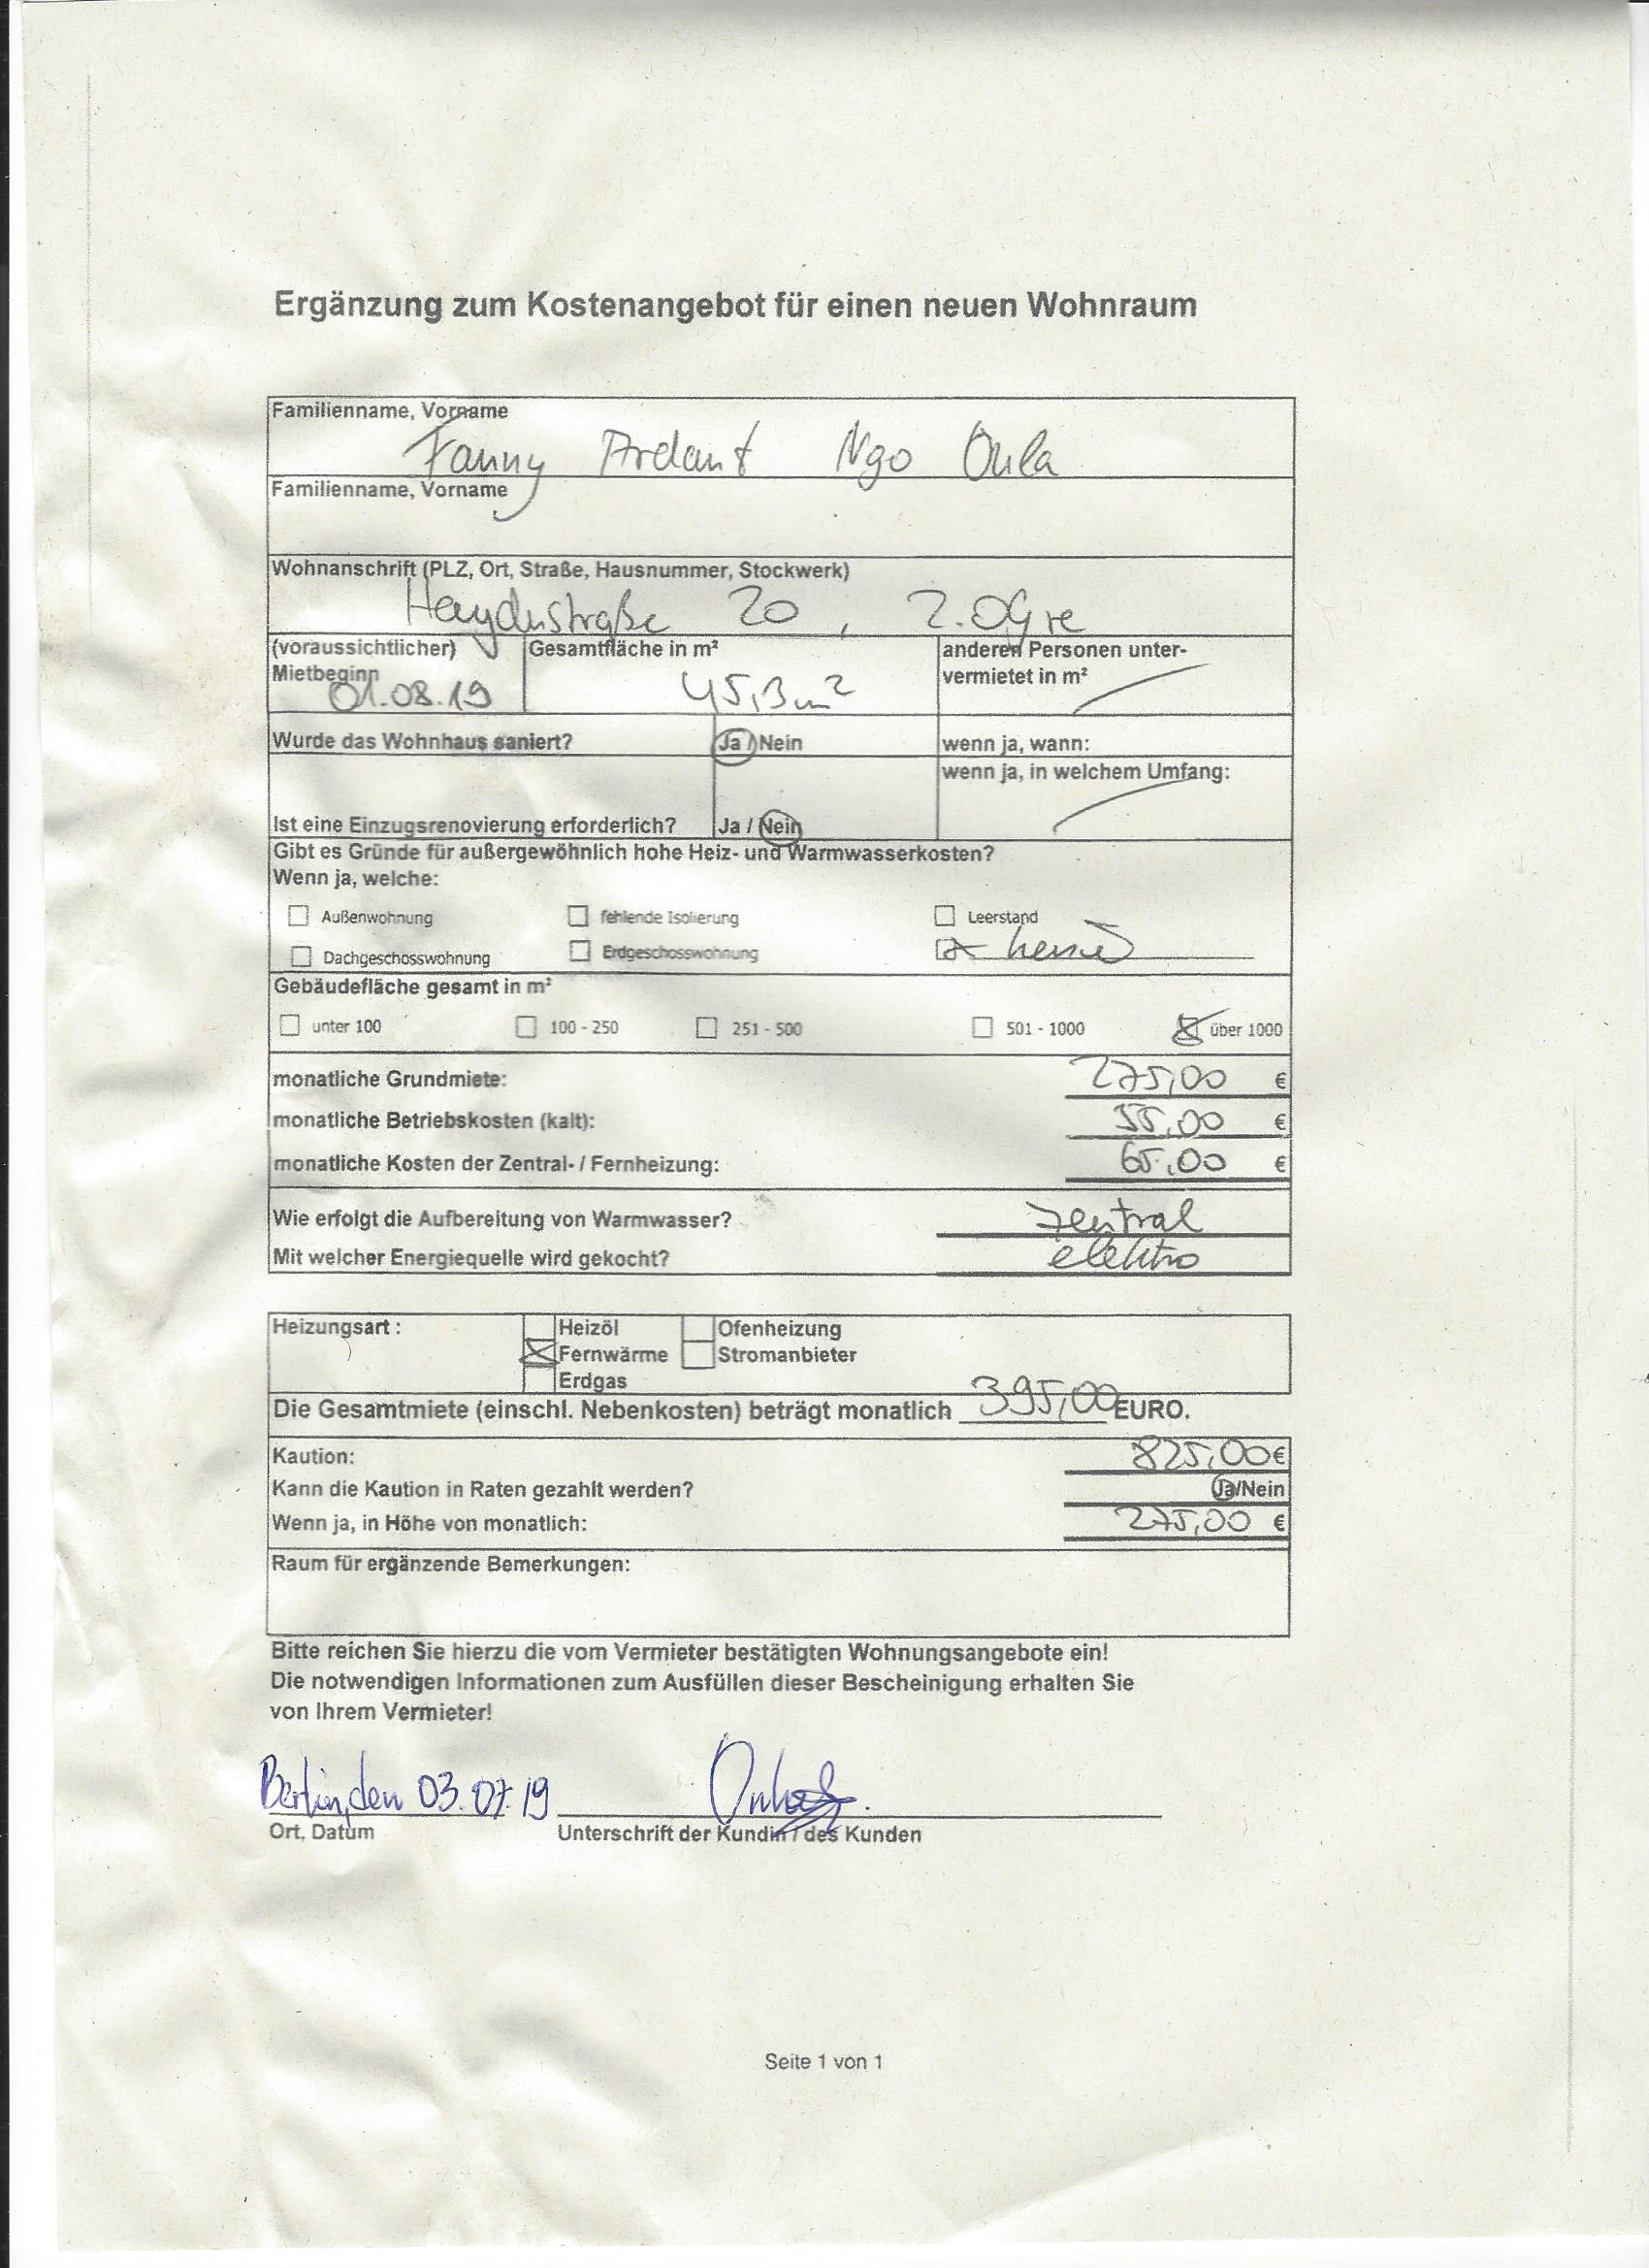 Ergänzung zum Kostenangebot für einen neuen Wohnraum
Familienname, Vorname
Fanny Ardant Ngo Oula
Familienname, Vorname
Wohnanschrift (PLZ, Ort, Straße, Hausnummer, Stockwerk)
Haydnstraße 20, 2.OG re
(voraussichtlicher) Mietbeginn 01.08.19
Gesamtfläche in m² 45,3 m²
anderen Personen unter-
vermietet in m²
Wurde das Wohnhaus saniert? Ja / Nein wenn ja, wann:
wenn ja, in welchem Umfang:
Ist eine Einzugsrenovierung erforderlich? Ja / Nein
Gibt es Gründe für außergewöhnlich hohe Heiz- und Warmwasserkosten?
Wenn ja, welche:
Außenwohnung fehlende Isolierung Leerstand
Dachgeschosswohnung Erdgeschosswohnung
Gebäudefläche gesamt in m²
unter 100 100 - 250 251 - 500 501 - 1000 über 1000
monatliche Grundmiete: 275,00 €
monatliche Betriebskosten (kalt): 55,00 €
monatliche Kosten der Zentral- / Fernheizung: 65,00 €
Wie erfolgt die Aufbereitung von Warmwasser? zentral
Mit welcher Energiequelle wird gekocht? elektro
Heizungsart : Heizöl Ofenheizung
Fernwärme Stromanbieter
Erdgas
Die Gesamtmiete (einschl. Nebenkosten) beträgt monatlich 395,00 EURO.
Kaution: 825,00 €
Kann die Kaution in Raten gezahlt werden? Ja/Nein
Wenn ja, in Höhe von monatlich: 275,00 €
Raum für ergänzende Bemerkungen:
Bitte reichen Sie hierzu die vom Vermieter bestätigten Wohnungsangebote ein!
Die notwendigen Informationen zum Ausfüllen dieser Bescheinigung erhalten Sie
von Ihrem Vermieter!
Berlin, den 03.07.19
Ort, Datum Unterschrift der Kundin / des Kunden
Seite 1 von 1